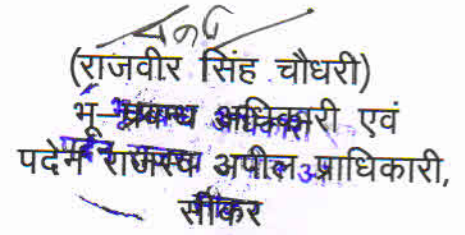 (राजवीर सिंह चौधरी)
भू-प्रबन्ध अधिकारी एवं
पदेन राजस्व अपील प्राधिकारी,
सीकर